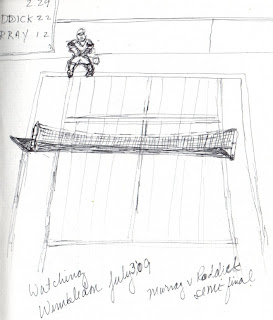 2 29
DDICK 22
RRAY 12
2
Watching
Wimbledon July 3'09
Murray v Roddick
semi final